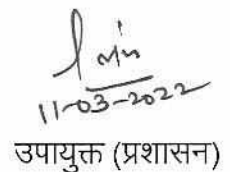 11-03-2022
उपायुक्त (प्रशासन)